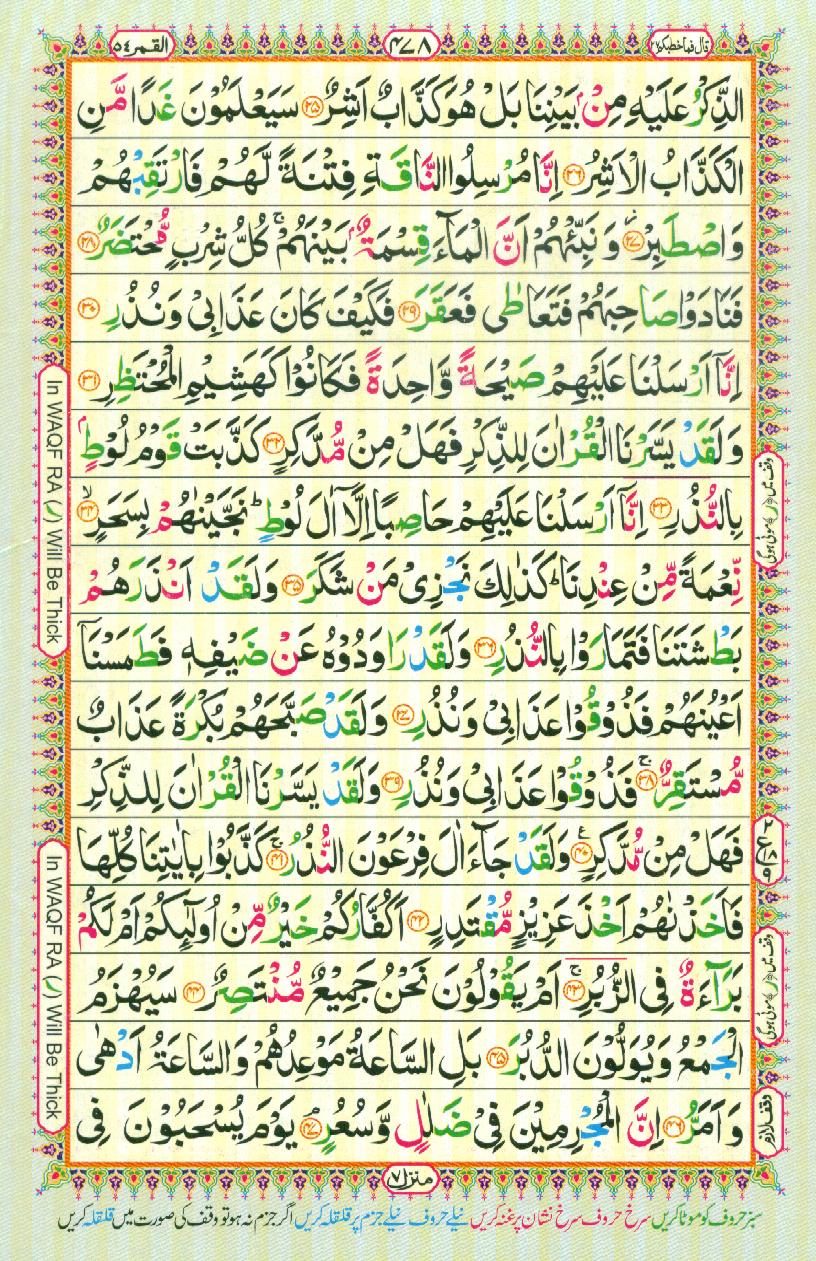 قال فما خطبكم ٢٧
٤٧٨
القمر ٥٤
الذِّكْرُ عَلَيْهِ مِنْۢ بَيْنِنَا بَلْ هُوَ كَذَّابٌ اَشِرٌ ﴿۲۵﴾ سَيَعْلَمُوْنَ غَدًا مَّنِ
الْكَذَّابُ الْاَشِرُ ﴿۲۶﴾ اِنَّا مُرْسِلُوا النَّاقَةِ فِتْنَةً لَّهُمْ فَارْتَقِبْهُمْ
وَاصْطَبِرْ ﴿۲۷﴾ وَ نَبِّئْهُمْ اَنَّ الْمَآءَ قِسْمَةٌۢ بَيْنَهُمْ ۚ كُلُّ شِرْبٍ مُّحْتَضَرٌ ﴿۲۸﴾
فَنَادَوْا صَاحِبَهُمْ فَتَعَاطٰى فَعَقَرَ ﴿۲۹﴾ فَكَيْفَ كَانَ عَذَابِىْ وَ نُذُرِ ﴿۳۰﴾
اِنَّاۤ اَرْسَلْنَا عَلَيْهِمْ صَيْحَةً وَّاحِدَةً فَكَانُوْا كَهَشِيْمِ الْمُحْتَظِرِ ﴿۳۱﴾
وَلَقَدْ يَسَّرْنَا الْقُرْاٰنَ لِلذِّكْرِ فَهَلْ مِنْ مُّدَّكِرٍ ﴿۳۲﴾ كَذَّبَتْ قَوْمُ لُوْطٍۢ
بِالنُّذُرِ ﴿۳۳﴾ اِنَّاۤ اَرْسَلْنَا عَلَيْهِمْ حَاصِبًا اِلَّاۤ اٰلَ لُوْطٍ ؕ نَجَّيْنٰهُمْ بِسَحَرٍ ۙ﴿۳۴﴾
نِّعْمَةً مِّنْ عِنْدِنَا ؕ كَذٰلِكَ نَجْزِىْ مَنْ شَكَرَ ﴿۳۵﴾ وَلَقَدْ اَنْذَرَهُمْ
بَطْشَتَنَا فَتَمَارَوْا بِالنُّذُرِ ﴿۳۶﴾ وَلَقَدْ رَاوَدُوْهُ عَنْ ضَيْفِهٖ فَطَمَسْنَاۤ
اَعْيُنَهُمْ فَذُوْقُوْا عَذَابِىْ وَ نُذُرِ ﴿۳۷﴾ وَلَقَدْ صَبَّحَهُمْ بُكْرَةً عَذَابٌ
مُّسْتَقِرٌّ ۚ﴿۳۸﴾ فَذُوْقُوْا عَذَابِىْ وَ نُذُرِ ﴿۳۹﴾ وَلَقَدْ يَسَّرْنَا الْقُرْاٰنَ لِلذِّكْرِ
فَهَلْ مِنْ مُّدَّكِرٍ ﴿۴۰﴾ وَلَقَدْ جَآءَ اٰلَ فِرْعَوْنَ النُّذُرُ ۚ﴿۴۱﴾ كَذَّبُوْا بِاٰيٰتِنَا كُلِّهَا
فَاَخَذْنٰهُمْ اَخْذَ عَزِيْزٍ مُّقْتَدِرٍ ﴿۴۲﴾ اَكُفَّارُكُمْ خَيْرٌ مِّنْ اُولٰٓئِكُمْ اَمْ لَكُمْ
بَرَآءَةٌ فِى الزُّبُرِ ۚ﴿۴۳﴾ اَمْ يَقُوْلُوْنَ نَحْنُ جَمِيْعٌ مُّنْتَصِرٌ ﴿۴۴﴾ سَيُهْزَمُ
الْجَمْعُ وَيُوَلُّوْنَ الدُّبُرَ ﴿۴۵﴾ بَلِ السَّاعَةُ مَوْعِدُهُمْ وَالسَّاعَةُ اَدْهٰى
وَاَمَرُّ ﴿۴۶﴾ اِنَّ الْمُجْرِمِيْنَ فِىْ ضَلٰلٍ وَّسُعُرٍ ۘ﴿۴۷﴾ يَوْمَ يُسْحَبُوْنَ فِى
In WAQF RA (ر) Will Be Thick
In WAQF RA (ر) Will Be Thick
وقف میں (ر) موٹی ہوگی
وقف میں (ر) موٹی ہوگی
وقف لازم
منزل ۷
سبز حروف کو موٹا کریں سرخ حروف سرخ نشان پر غنہ کریں نیلے حروف نیلے جزم پر قلقلہ کریں اگر جزم نہ ہو تو وقف کی صورت میں قلقلہ کریں